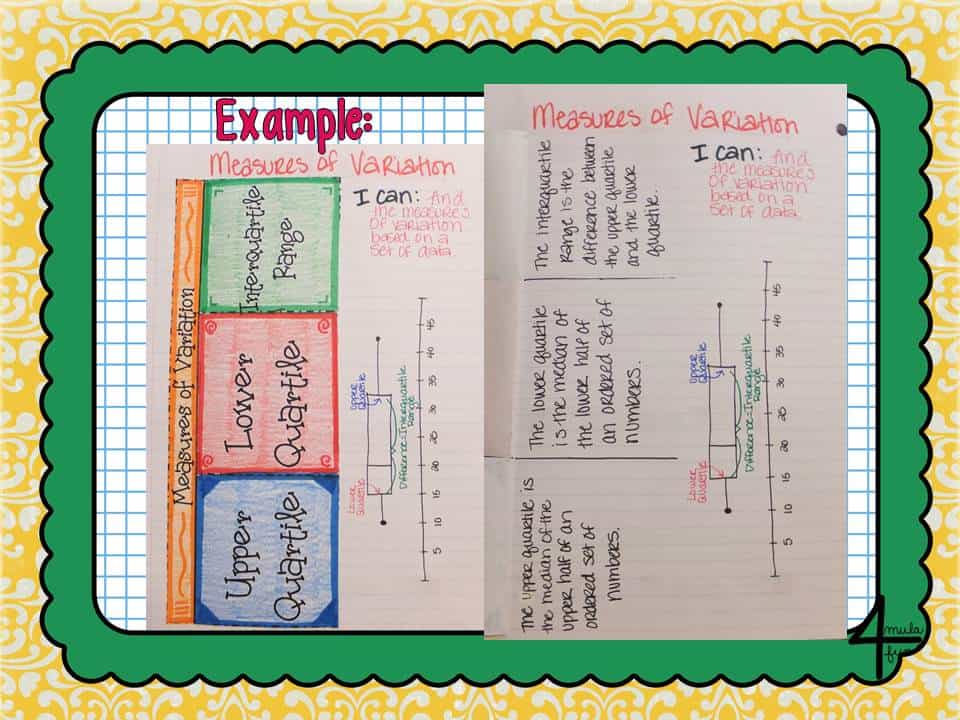 Example:
Measures of Variation
I can: find
the measures
of variation
based on a
set of data.
Measures of Variation
Interquartile
Range
Lower
Quartile
Upper
Quartile
Lower
Quartile
Upper
Quartile
Difference=Interquartile
Range
5 10 15 20 25 30 35 40 45
Measures of Variation
I can: find
the measures
of variation
based on a
set of data.
The interquartile
Range is the
difference between
the upper quartile
and the lower
quartile.
The lower quartile
is the median of
the lower half of
an ordered set of
numbers.
The upper quartile is
the median of the
upper half of an
ordered set of
numbers.
Lower
Quartile
Upper
Quartile
Difference=Interquartile
Range
5 10 15 20 25 30 35 40 45
4mula
fun